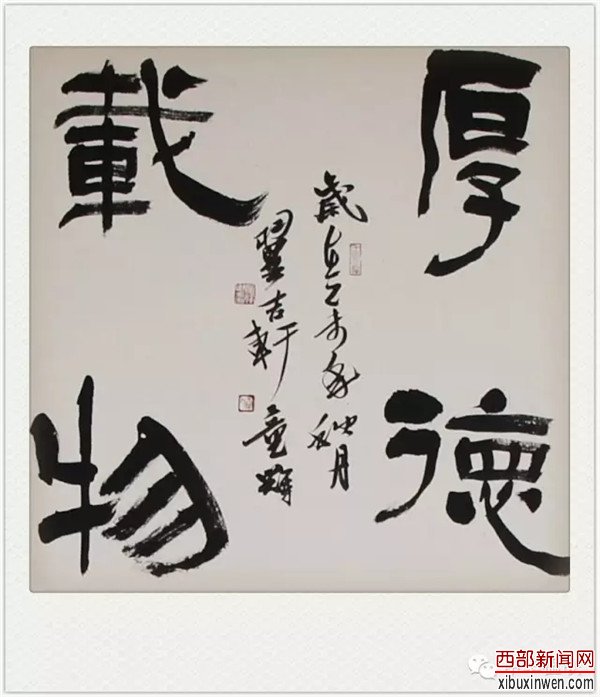 厚德
載物
歲在乙未年秋月
翼吉軒童輝
西部新闻网
xibuxinwen.com